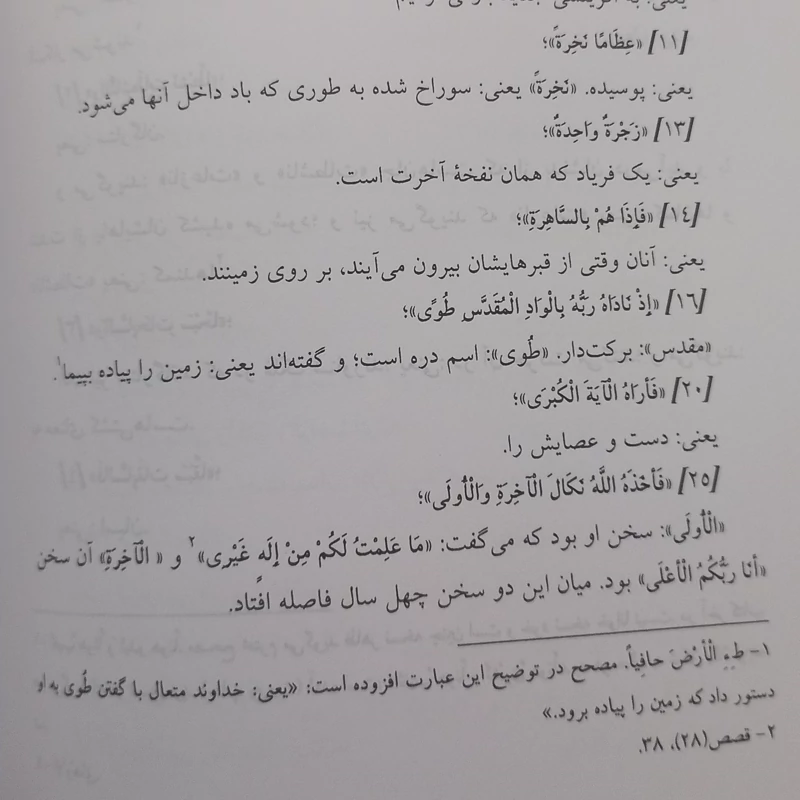 یعنی: به آفرینشی جدید
[۱۱] «عِظَامًا نَخِرَةً»؛
یعنی: پوسیده. «نَخِرَةً» یعنی: سوراخ شده به طوری که باد داخل آنها می‌شود.
[۱۳] «زَجْرَةٌ وَاحِدَةٌ»؛
یعنی: یک فریاد که همان نفخهٔ آخرت است.
[۱۴] «فَإِذَا هُمْ بِالسَّاهِرَةِ»؛
یعنی: آنان وقتی از قبرهایشان بیرون می‌آیند، بر روی زمینند.
[۱۶] «إِذْ نَادَاهُ رَبُّهُ بِالْوَادِ الْمُقَدَّسِ طُوًی»؛
«مقدس»: برکت‌دار. «طُوی»: اسم دره است؛ و گفته‌اند یعنی: زمین را پیاده بپیما۱.
[۲۰] «فَأَرَاهُ الْآيَةَ الْكُبْرَی»؛
یعنی: دست و عصایش را.
[۲۵] «فَأَخَذَهُ اللَّهُ نَكَالَ الْآخِرَةِ وَالْأُولَی»؛
«الْأُولَی»: سخن او بود که می‌گفت: «مَا عَلِمْتُ لَكُمْ مِنْ إِلَهٍ غَيْرِی»۲ و « الْآخِرَةِ» آن سخن
«أَنَا رَبُّكُمُ الْأَعْلَی» بود. میان این دو سخن چهل سال فاصله افتاد.
۱- طءِ الْأَرْضَ حافِیاً. مصحح در توضیح این عبارت افزوده است: «یعنی: خداوند متعال با گفتن طُوی به او
دستور داد که زمین را پیاده برود.»
۲- قصص(۲۸)، ۳۸.